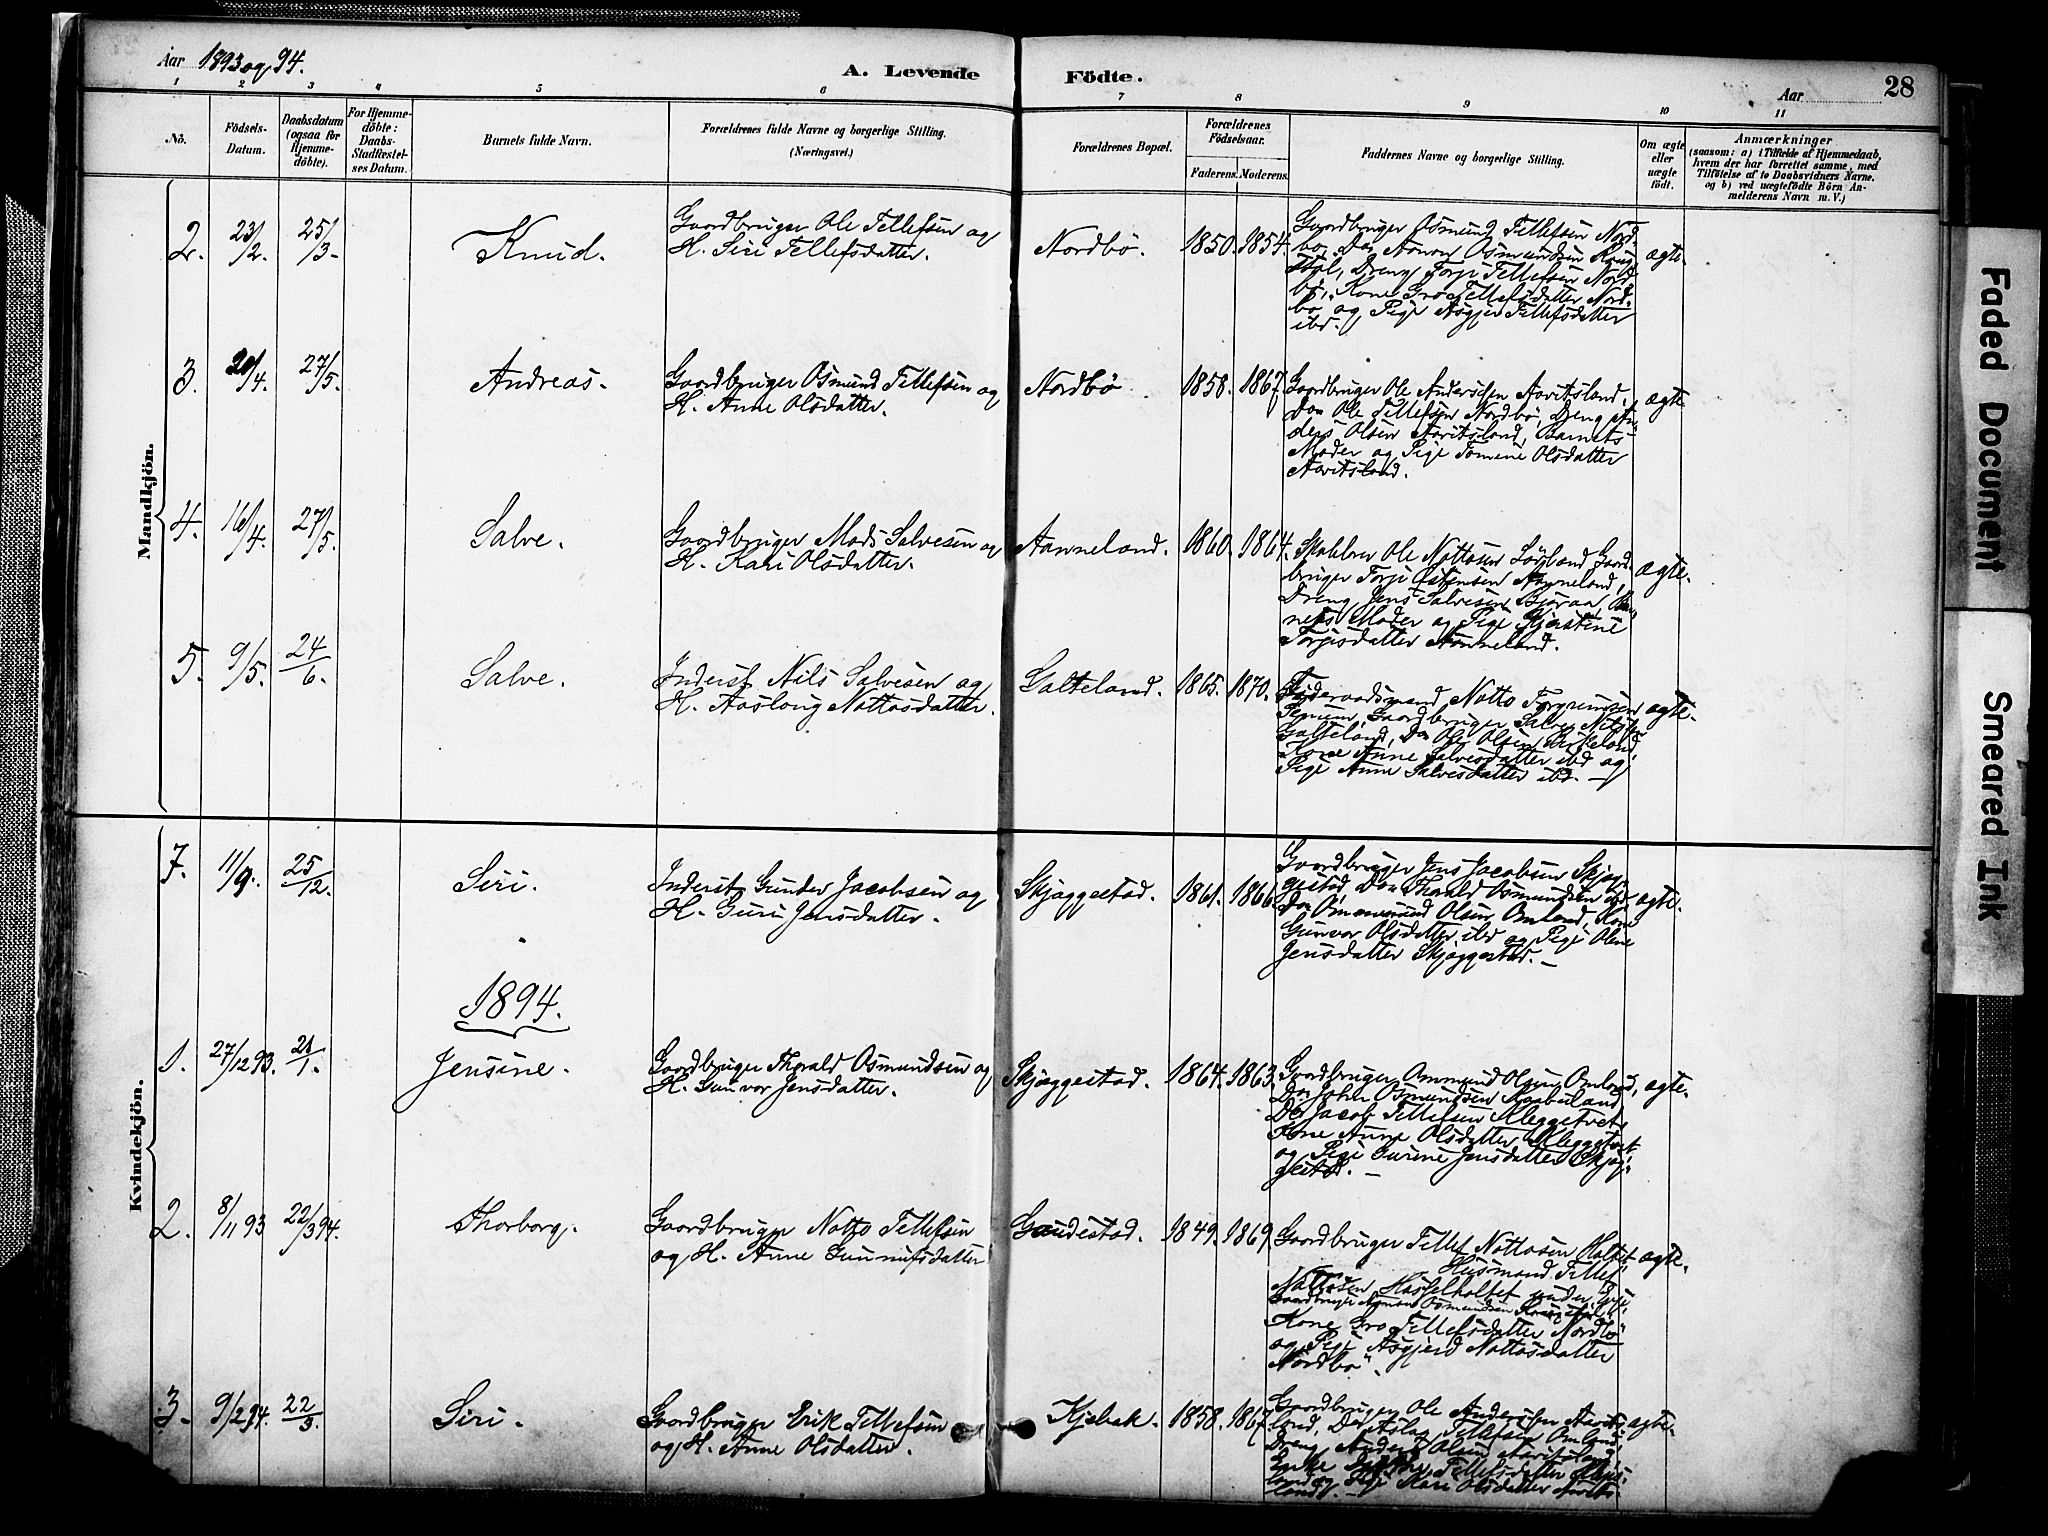 Aar 1893 og 94.
A. Levende Födte.
Aar 28
1 2 3 4 5 6 7 8 9 10 11
No.
Födsels-Datum.
Daabsdatum (ogsaa for Hjemme-döbte).
For Hjemme-döbte: Daabs-Stadfæstel-ses Datum.
Barnets fulde Navn.
Forældrenes fulde Navne og borgerlige Stilling.
(Næringsvei.)
Forældrenes Bopæl.
Forældrenes Födselsaar.
Faderens. Moderens.
Faddernes Navne og borgerlige Stilling.
Om ægte eller uægte födt.
Anmærkninger
(saasom: a) i Tilfælde af Hjemmedaab,
hvem der har forrettet samme, med
Tilföielse af to Daabsvidners Navne.
og b) ved uægtefödte Börn An-
melderens Navn m. V.)
Mandkjön.
2. 23/2. 25/3. Knud.
Gaardbruger Ole Tellefsen og
H. Siri Tellefsdatter.
Nordbö. 1850. 1854.
Gaardbruger Osmund Tellefsen Nord-
bö, Do Aanon Osmundsen
Dreng Torje Tellefsen Nord-
bö, Kone Gro Tellefsdatter Nord-
bö og Pige Asgjer Tellefsdatter
ibd.
ægte.
3. 20/4. 27/5. Andreas.
Gaardbruger Osmund Tellefsen og
H. Anne Olsdatter.
Nordbö 1858. 1867.
Gaardbruger Ole Andersen Aavitsland.
Do Ole Tellefsen Nordbö, Dreng An-
ders Olsen Aavitsland, Barnets
Moder og Pige Tomene Olsdatter
Aavitsland.
ægte
4. 16/4. 27/5. Salve.
Gaardbruger Mads Salvesen og
H. Kari Olsdatter.
Aanneland. 1860. 1864.
Ole Nottosen Gaard-
bruger Torje Aanneland,
Dreng Jens Salvesen Bar-
nets Moder og Pige
Torjisdatter Aanneland.
ægte.
5. 9/5. 24/6. Salve.
Inderst Nils Salvesen og
H. Aaslaug Nottosdatter.
Galteland. 1865. 1870.
Notto
Gaardbruger Salve
Galteland, Do Ole Olsen
Kone Anne Salvesdatter ibd og
Pige Anne Salvesdatter ibd. —
ægte.
Kvindekjön.
7. 11/9. 25/12. Siri.
Inderst Gunder Jacobsen og
H. Guri Jensdatter.
Skjæggestad. 1861. 1866.
Gaardbruger Jens Jacobsen Skjæg-
gestad, Do Tharald Osmundsen ibd,
Do Ommund Olsen Omland, Kone
Gunvor Olsdatter ibd og Pige Olene
Jensdatter Skjæggestad. —
ægte.
1894.
1. 27/12 93. 21/1. Jensine.
Gaardbruger Tharald Osmundsen og
H. Gunvor Jensdatter.
Skjæggestad. 1864. 1863.
Gaardbruger Ommund Olsen Omland,
Do John Osmundsen
Do Jacob Tellefsen Kleggetvet,
Kone Anne Olsdatter Kleggetvet
og Pige Jensdatter Skjæg-
gestad. —
ægte.
2. 8/11 93 22/3 94. Thorborg.
Gaardbruger Notto Tellefsen
og H. Anne Gunnufsdatter
Gaudestad. 1849. 1869.
Gaardbruger Tellef Nottosen Holtet
Husmand Tellef
Nottosen Hasselholtet under
Gaardbruger Aanon Osmundsen
Kone Gro Tellefsdatter Nordbö
og Pige Asgjerd Nottosdatter
Nordbö.
ægte.
3. 9/2 94. 22/3. Siri.
Gaardbruger Erik Tellefsen
og H. Anne Olsdatter.
Kjebak. 1858. 1867.
Gaardbruger Ole Andersen Aavits-
land, Do Aslag Tellefsen Omland,
Dreng Anders Olsen Aavitsland,
Enke Tellefsdatter
land og Pige Kari Olsdatter Aavits-
land. —
ægte.
Faded Document
Smeared Ink